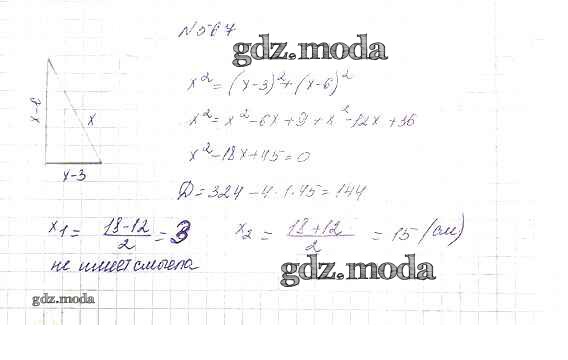 N 567
gdz.moda
x² = (x-3)² + (x-6)²
x-6
x
x² = x² - 6x + 9 + x² - 12x + 36
x² - 18x + 45 = 0
x-3
D = 324 - 4 · 1 · 45 = 144
x₁ = (18-12)/2 = 3 x₂ = (18+12)/2 = 15 (см)
не имеет смысла
gdz.moda
gdz.moda